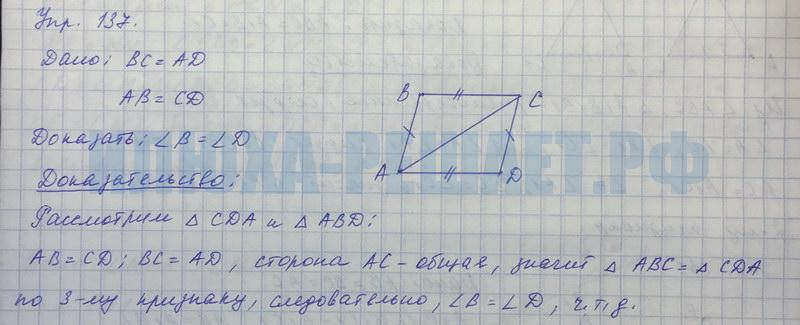 Упр. 137.
Дано: BC = AD
AB = CD
B
C
A
D
Доказать: ∠B = ∠D
Доказательство:
Рассмотрим △ CDA и △ ABD:
AB = CD; BC = AD, сторона AC – общая, значит △ ABC = △ CDA
по 3-му признаку, следовательно, ∠B = ∠D, ч.т.д.